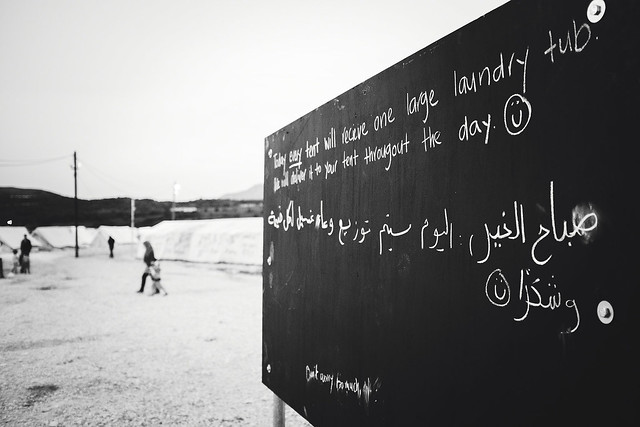 Today every tent will recieve one large laundry tub.
We will deliver it to your tent througout the day.
صباح الخير. اليوم سيتم توزيع وعاء غسيل لكل خيمة
وشكرًا
Don't worry too much,